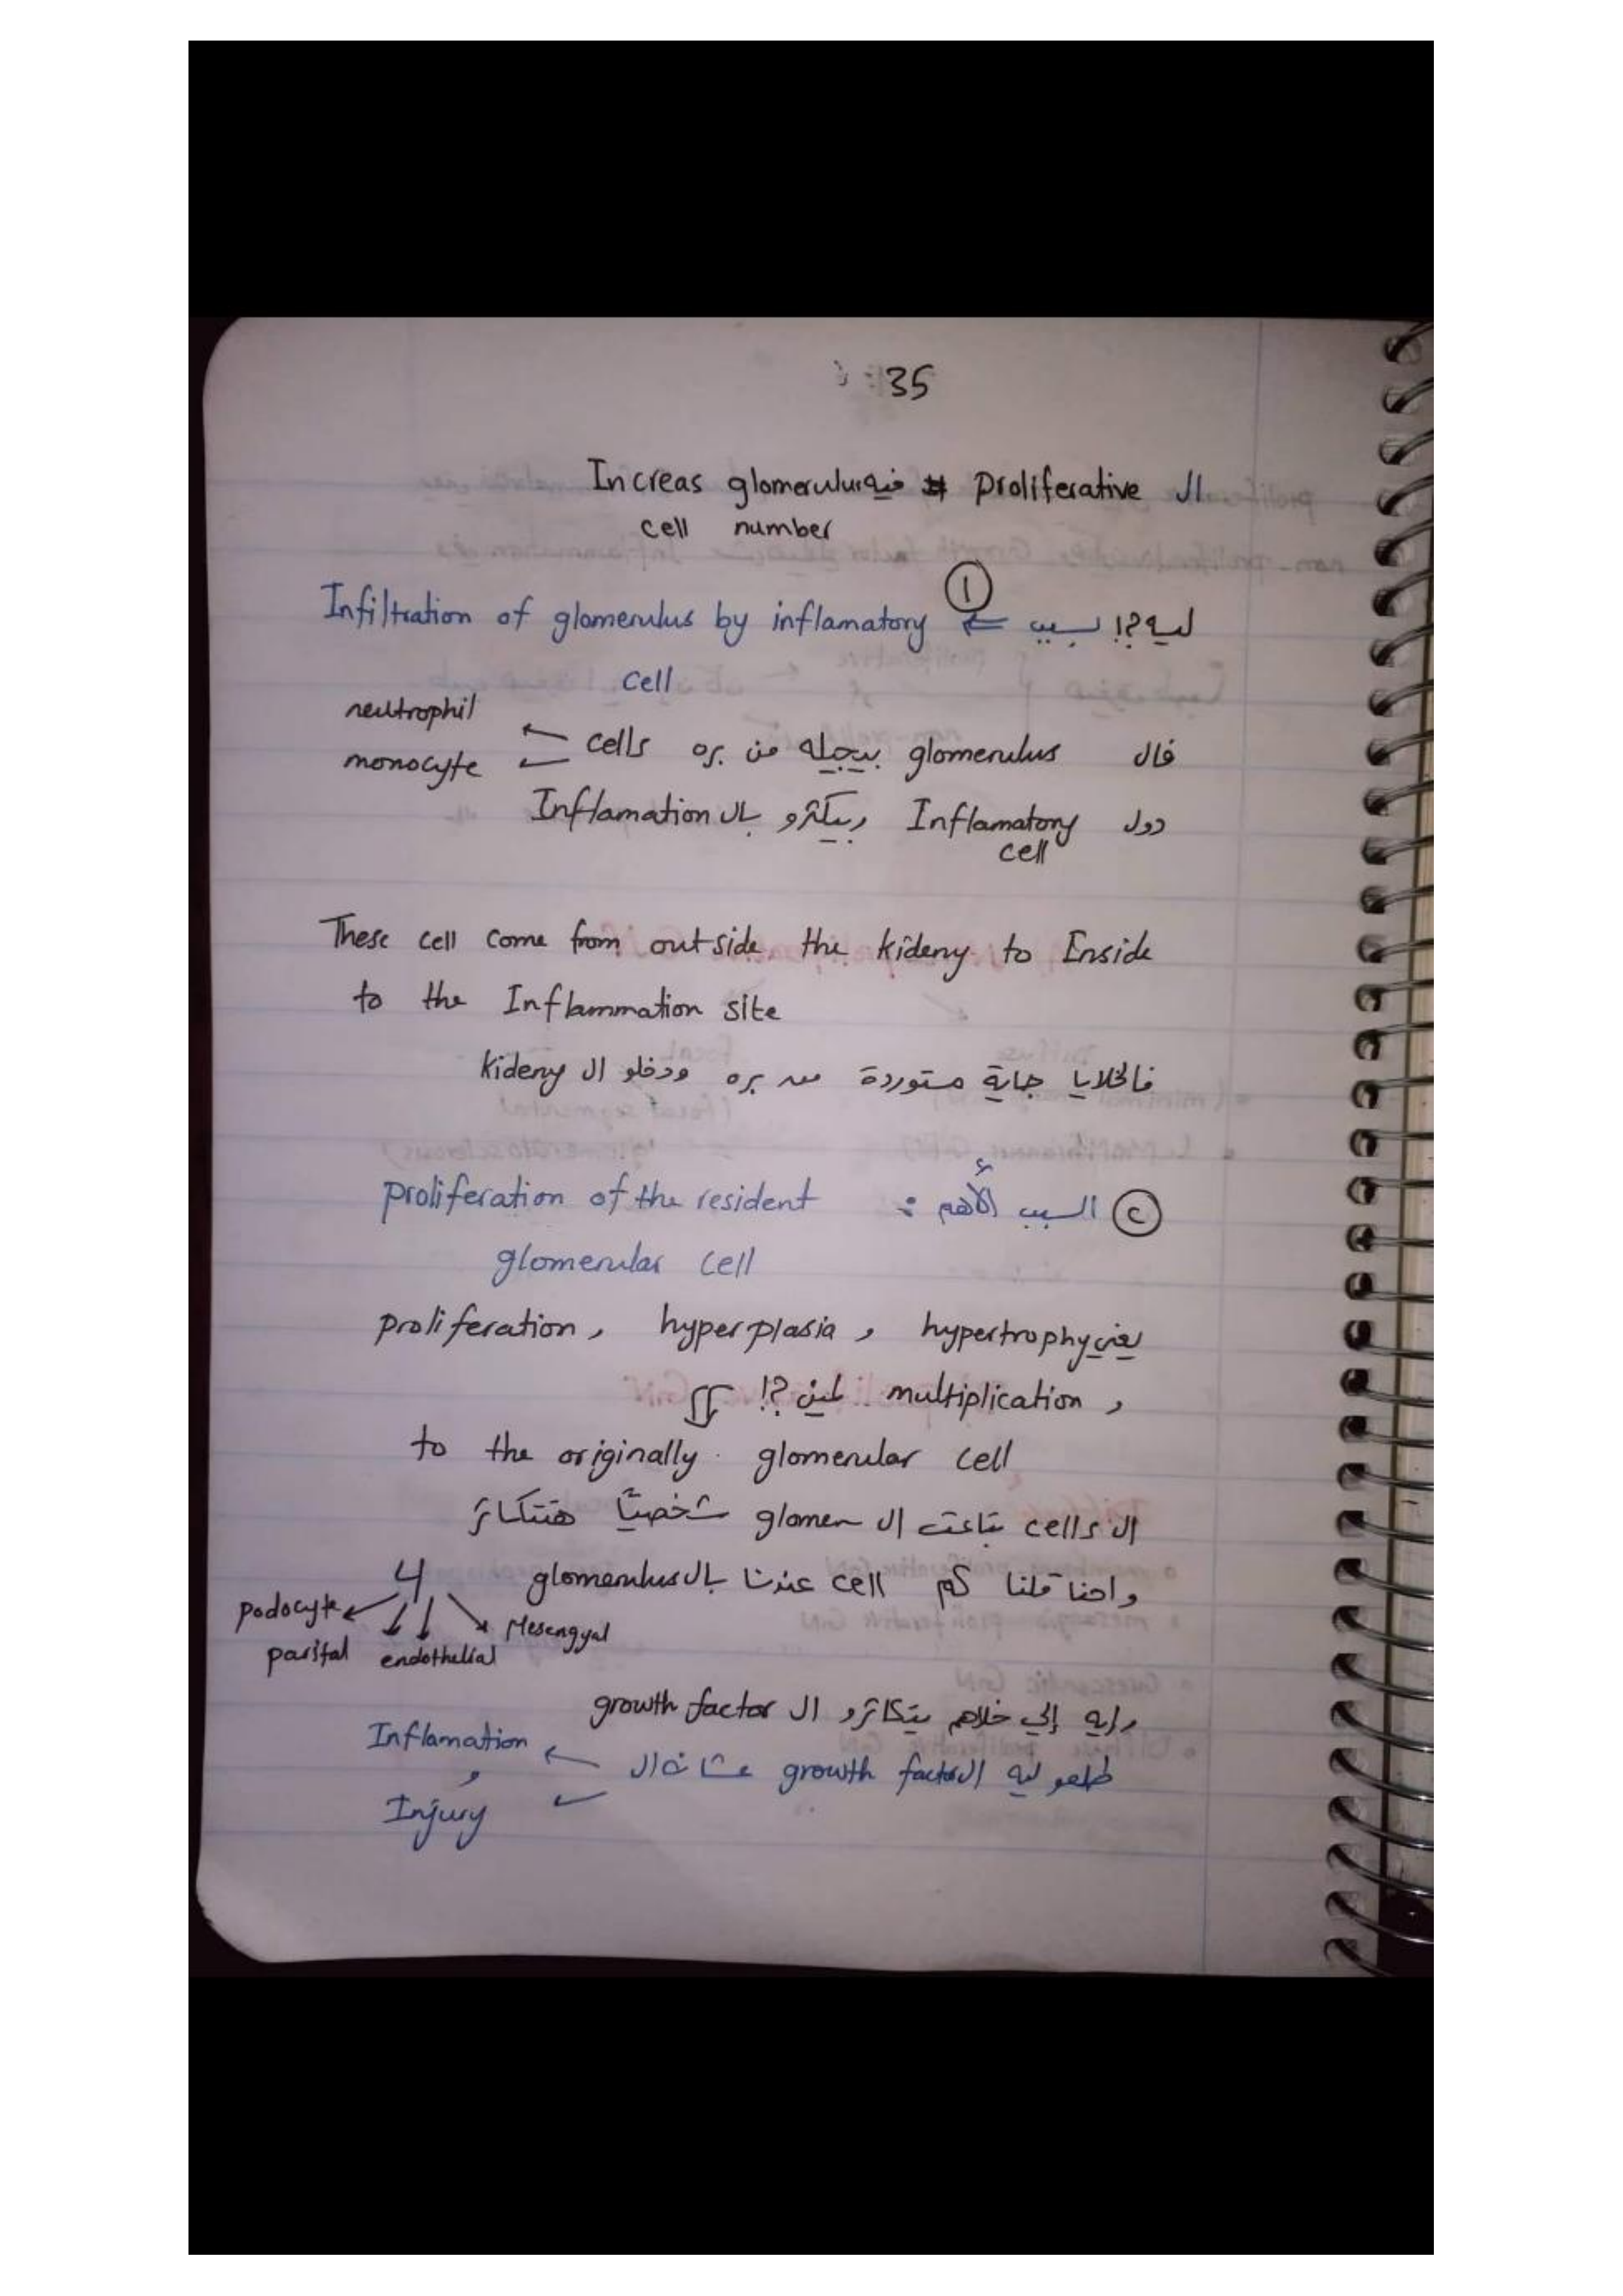 35
ال Proliferative # فيه Increas glomerulur
cell number
ليه؟! بسبب ⇐ ① Infiltration of glomerulus by inflamatory
cell
فال glomerulus بيجيله من بره cells ← neutrophil
← monocyte
دول Inflamatory وبيكترو بال Inflamation
cell
These cell come from outside the kideny to Inside
to the Inflammation site
فالخلايا جاية مستوردة من بره ودخلو ال kideny
② السبب الأهم : proliferation of the resident
glomerular cell
يعني hypertrophy , hyperplasia , proliferation
, multiplication لمين؟!
to the originally glomerular cell
ال cells بتاعت ال glomer شخصيًا هتتكاثر
واحنا قلنا كم cell عندنا بال glomerulus 4
podocyte
parital endothelial Mesengyal
وايه إلي خلاهم يتكاثرو ال growth factor
طلعو ليه ال growth factor عشان ال ← Inflamation
و
← Injury